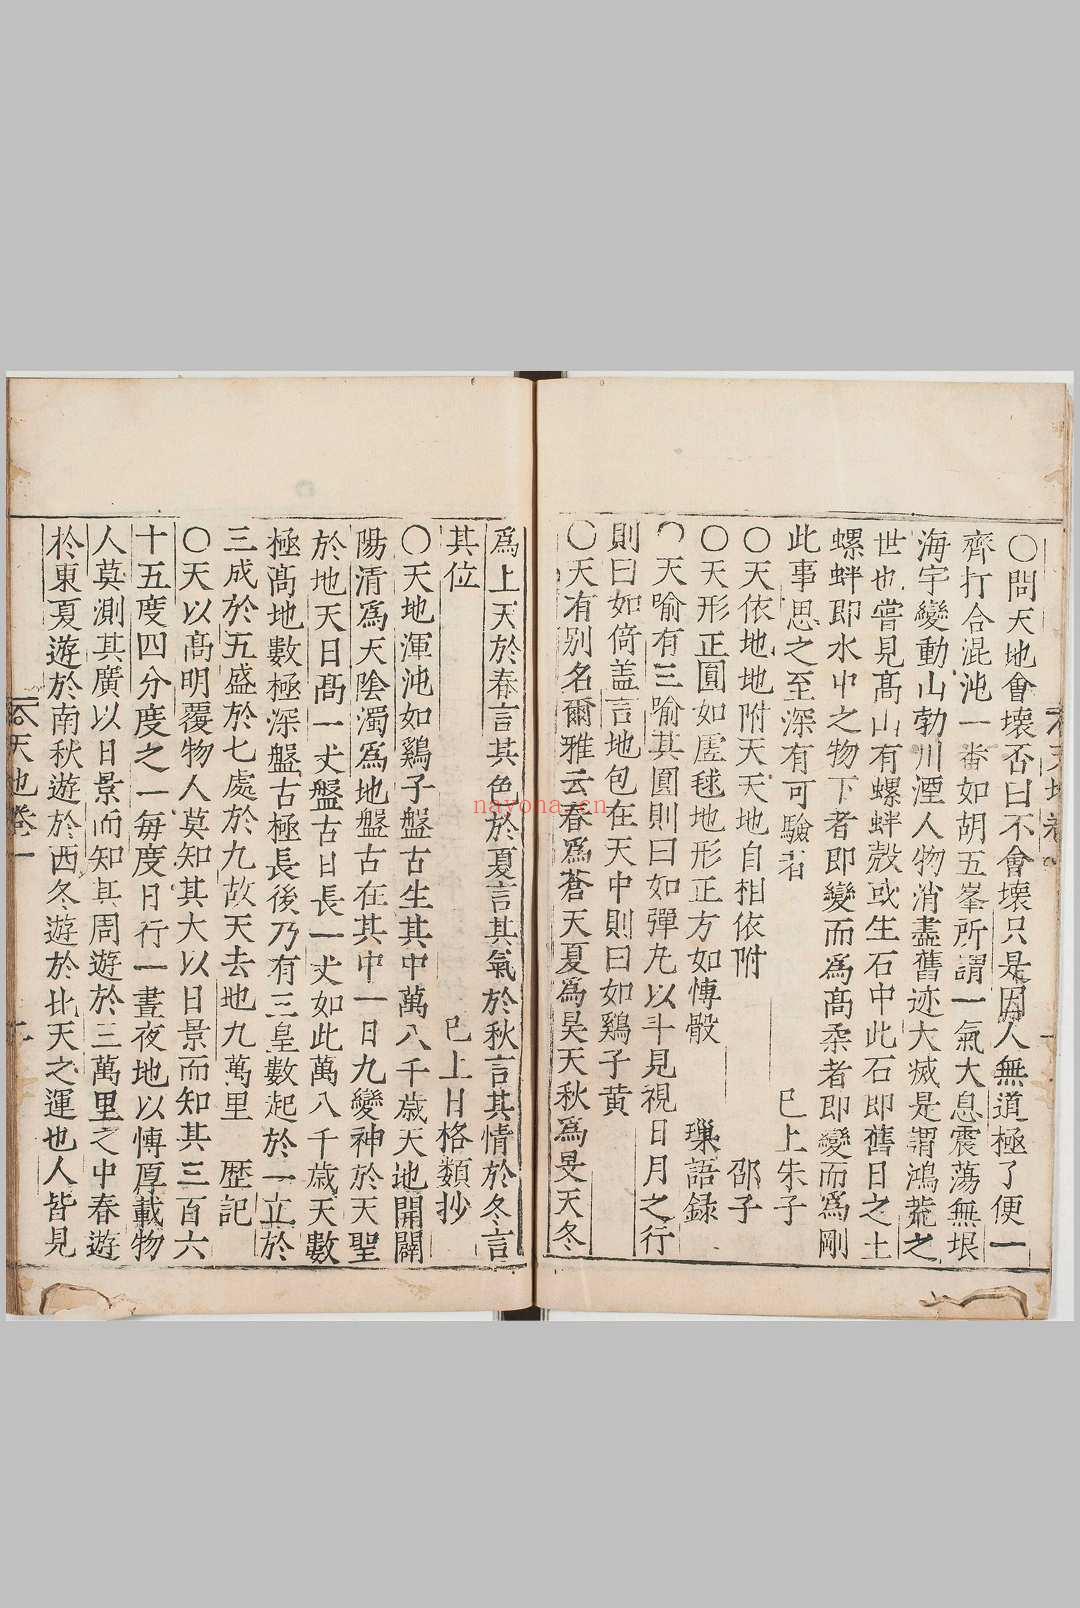 ○問天地會壞否曰不會壞只是因人無道極了便一
齊打合混沌一番如胡五峯所謂一氣大息震蕩無垠
海宇變動山勃川湮人物消盡舊迹大滅是謂鴻荒之
世也嘗見髙山有螺蚌殼或生石中此石即舊日之土
螺蚌即水中之物下者即變而爲髙柔者即變而爲剛
此事思之至深有可驗者 已上朱子
○天依地地附天天地自相依附 邵子
○天形正圓如虗毬地形正方如愽骰 璅語録
○天喻有三喻其圓則曰如彈丸以斗見視日月之行
則曰如倚盖言地包在天中則曰如鷄子黄
○天有别名爾雅云春爲蒼天夏爲昊天秋爲旻天冬
爲上天於春言其色於夏言其氣於秋言其情於冬言
其位 已上日格類抄
○天地渾沌如鷄子盤古生其中萬八千歳天地開闢
陽清爲天隂濁爲地盤古在其中一日九變神於天聖
於地天日髙一丈盤古日長一丈如此萬八千歳天數
極髙地數極深盤古極長後乃有三皇數起於一立於
三成於五盛於七處於九故天去地九萬里 歴記
○天以髙明覆物人莫知其大以日景而知其三百六
十五度四分度之一毎度日行一晝夜地以愽厚載物
人莫測其廣以日景而知其周遊於三萬里之中春遊
於東夏遊於南秋遊於西冬遊於北天之運也人皆見
天地卷一
nayona.cn